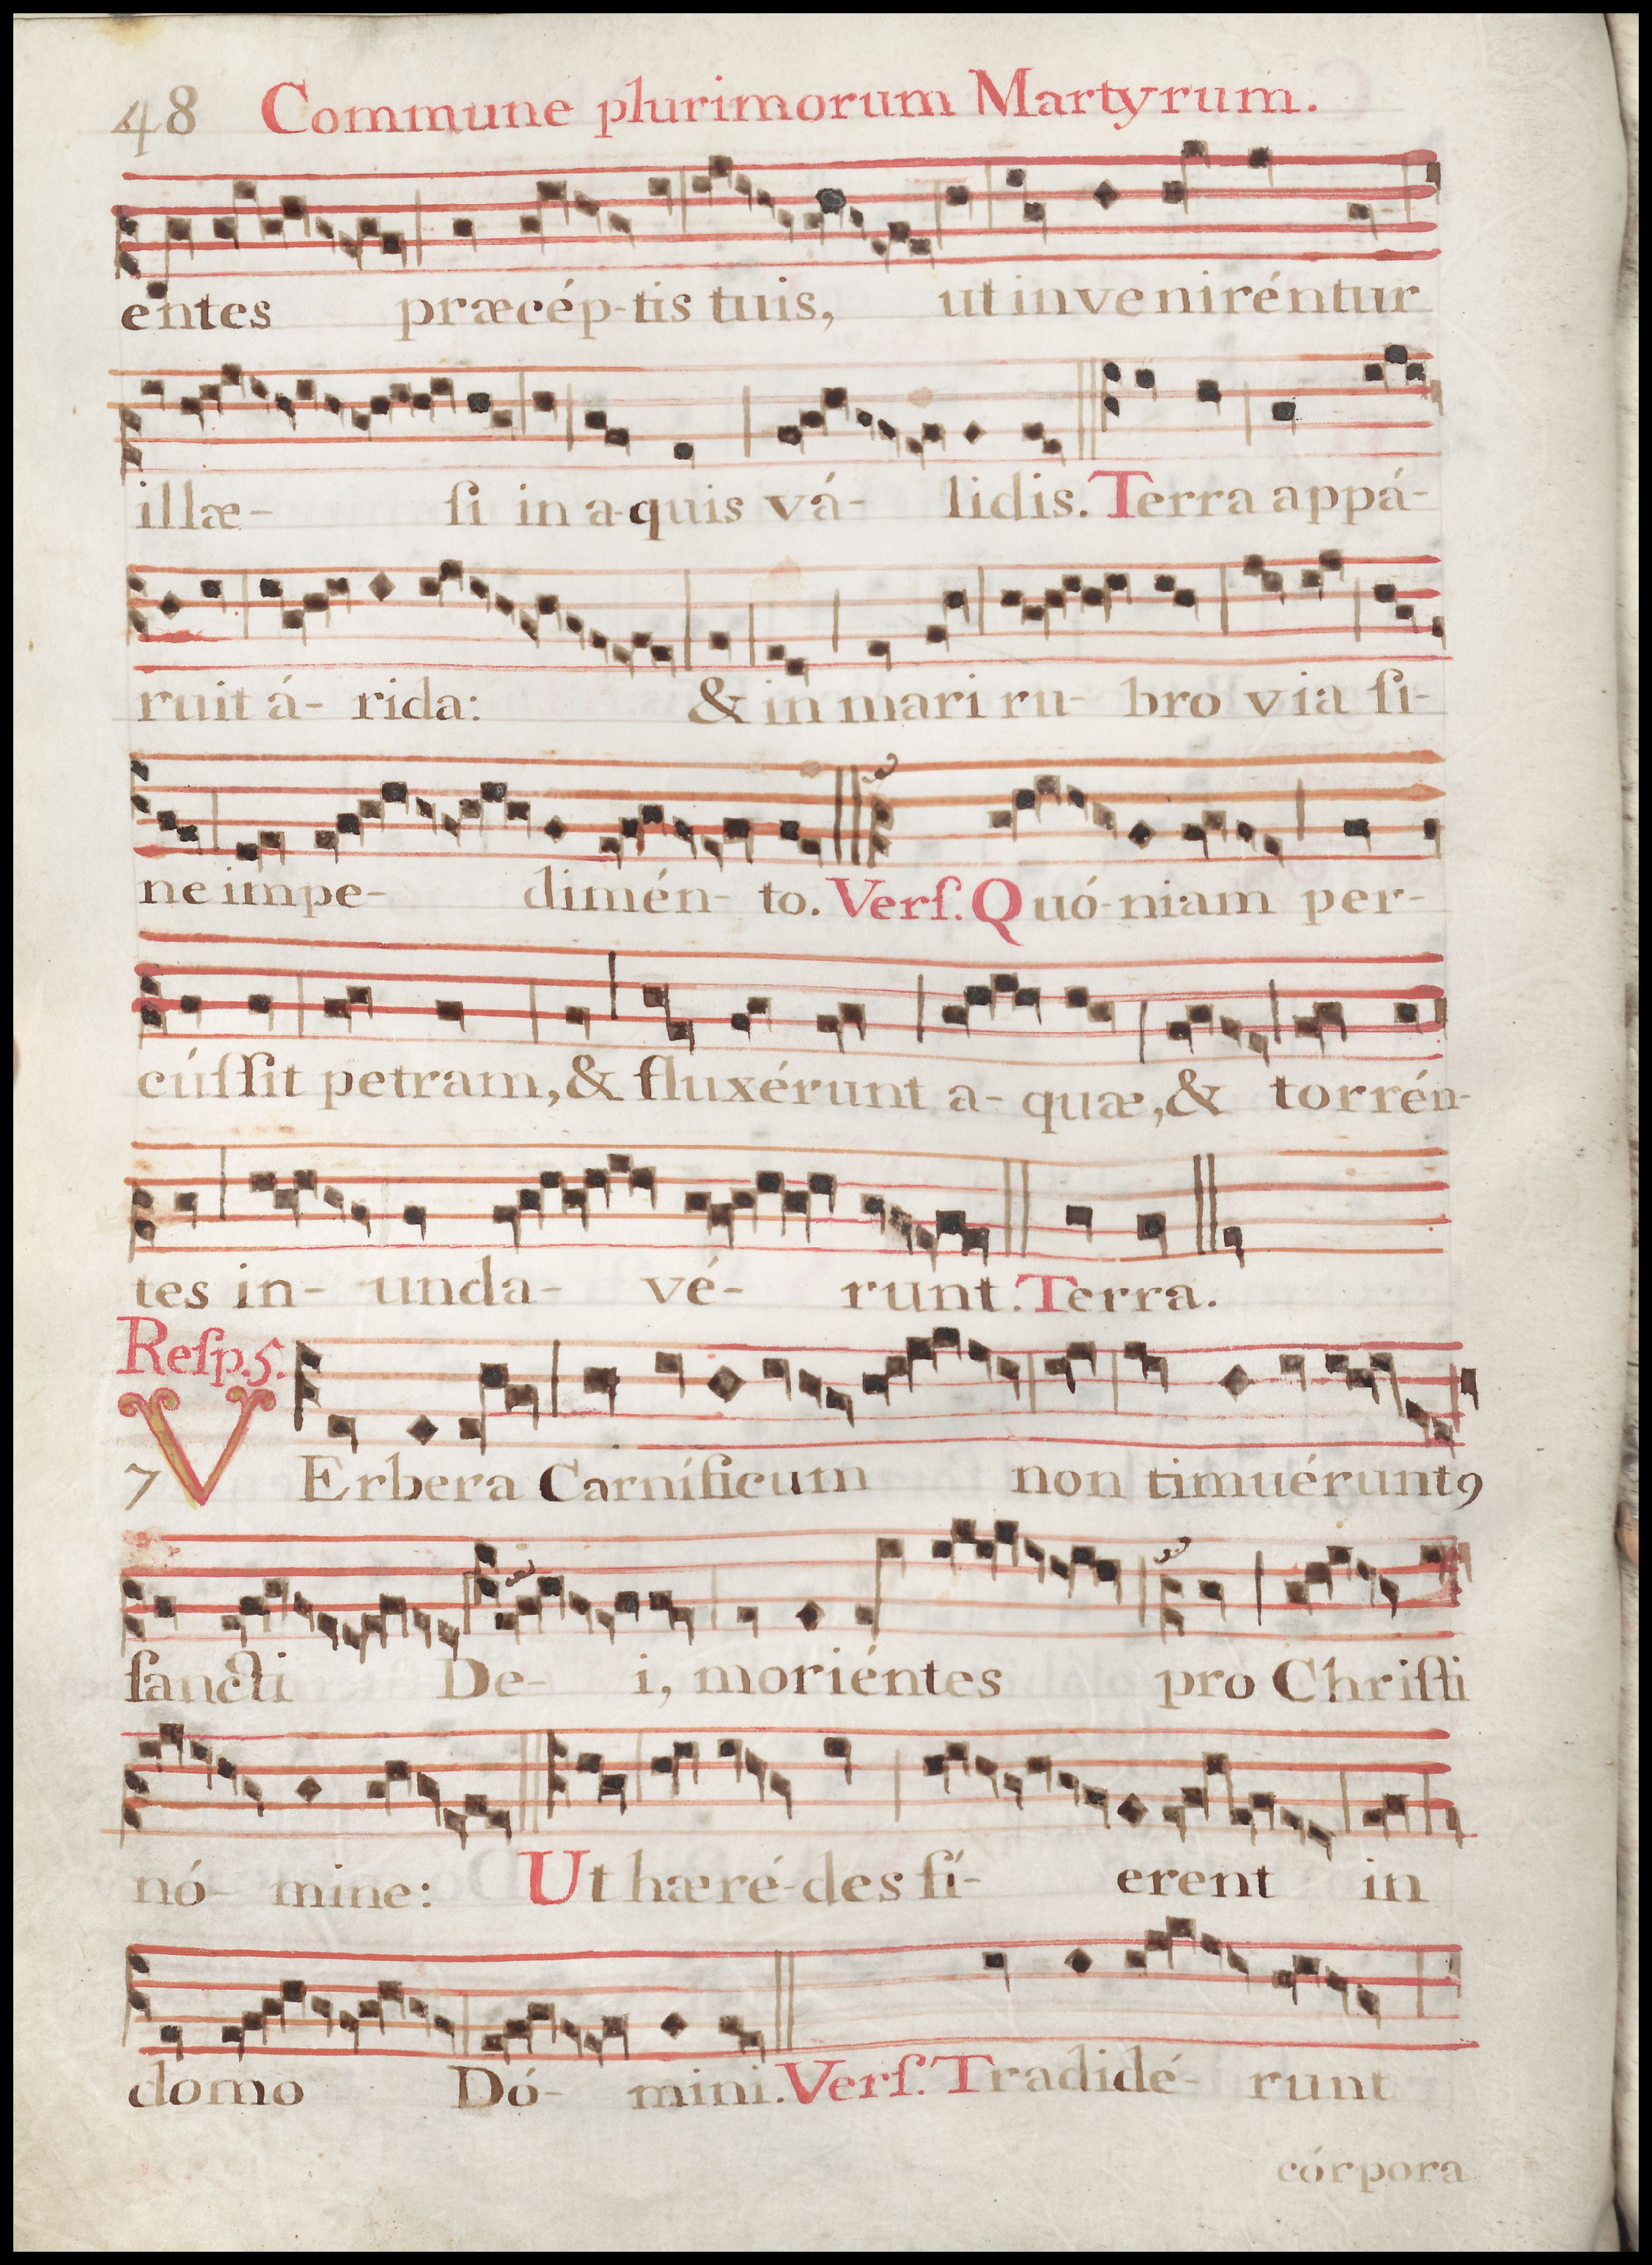 48 Commune plurimorum Martyrum.
entes præcép-tis tuis, ut inveniréntur
illæ- ſi in a-quis vá- lidis. Terra appá-
ruit á- rida: & in mari ru- bro via ſi-
ne impe- dimén- to. Verſ. Quó-niam per-
cúſſit petram, & fluxérunt a- quæ, & torrén-
tes in- unda- vé- runt. Terra.
Reſp. 5.
7 VErbera Carníficum non timuérunt9
ſancti De- i, moriéntes pro Chriſti
nó- mine: Ut hæré-des fí- erent in
domo Dó- mini. Verſ. Tradidé- runt
córpora